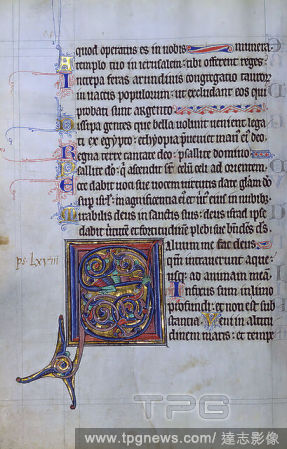 quod operatus es in nobis munera.
templo tuo in ierusalem: tibi offerent reges
Increpa feras arundinis congregatio tauroꝝ
in vaccis populorum: ut excludant eos qui
probati sunt argento
Dissipa gentes que bella volunt: venient lega
ti ex egypto: ethyopia
Regna terre cantate deo: psallite domino
Psallite deo: celum celi ad orientem.
Ecce dabit voci sue vocem virtutis date gloriam deo
sup magnificentia
Mirabilis deus in sanctis suis: deus israel ipse
dabit virtutem et fortitudinem plebi sue
ps LXVIII
Salvum me fac deus
qm intraverunt aque
usq; ad animam meā
Infixus sum in limo
profundi: et non est sub
stantia. Veni in altitu
dinem maris: et temp
TPG
www.tpgnews.com/ 達志影像